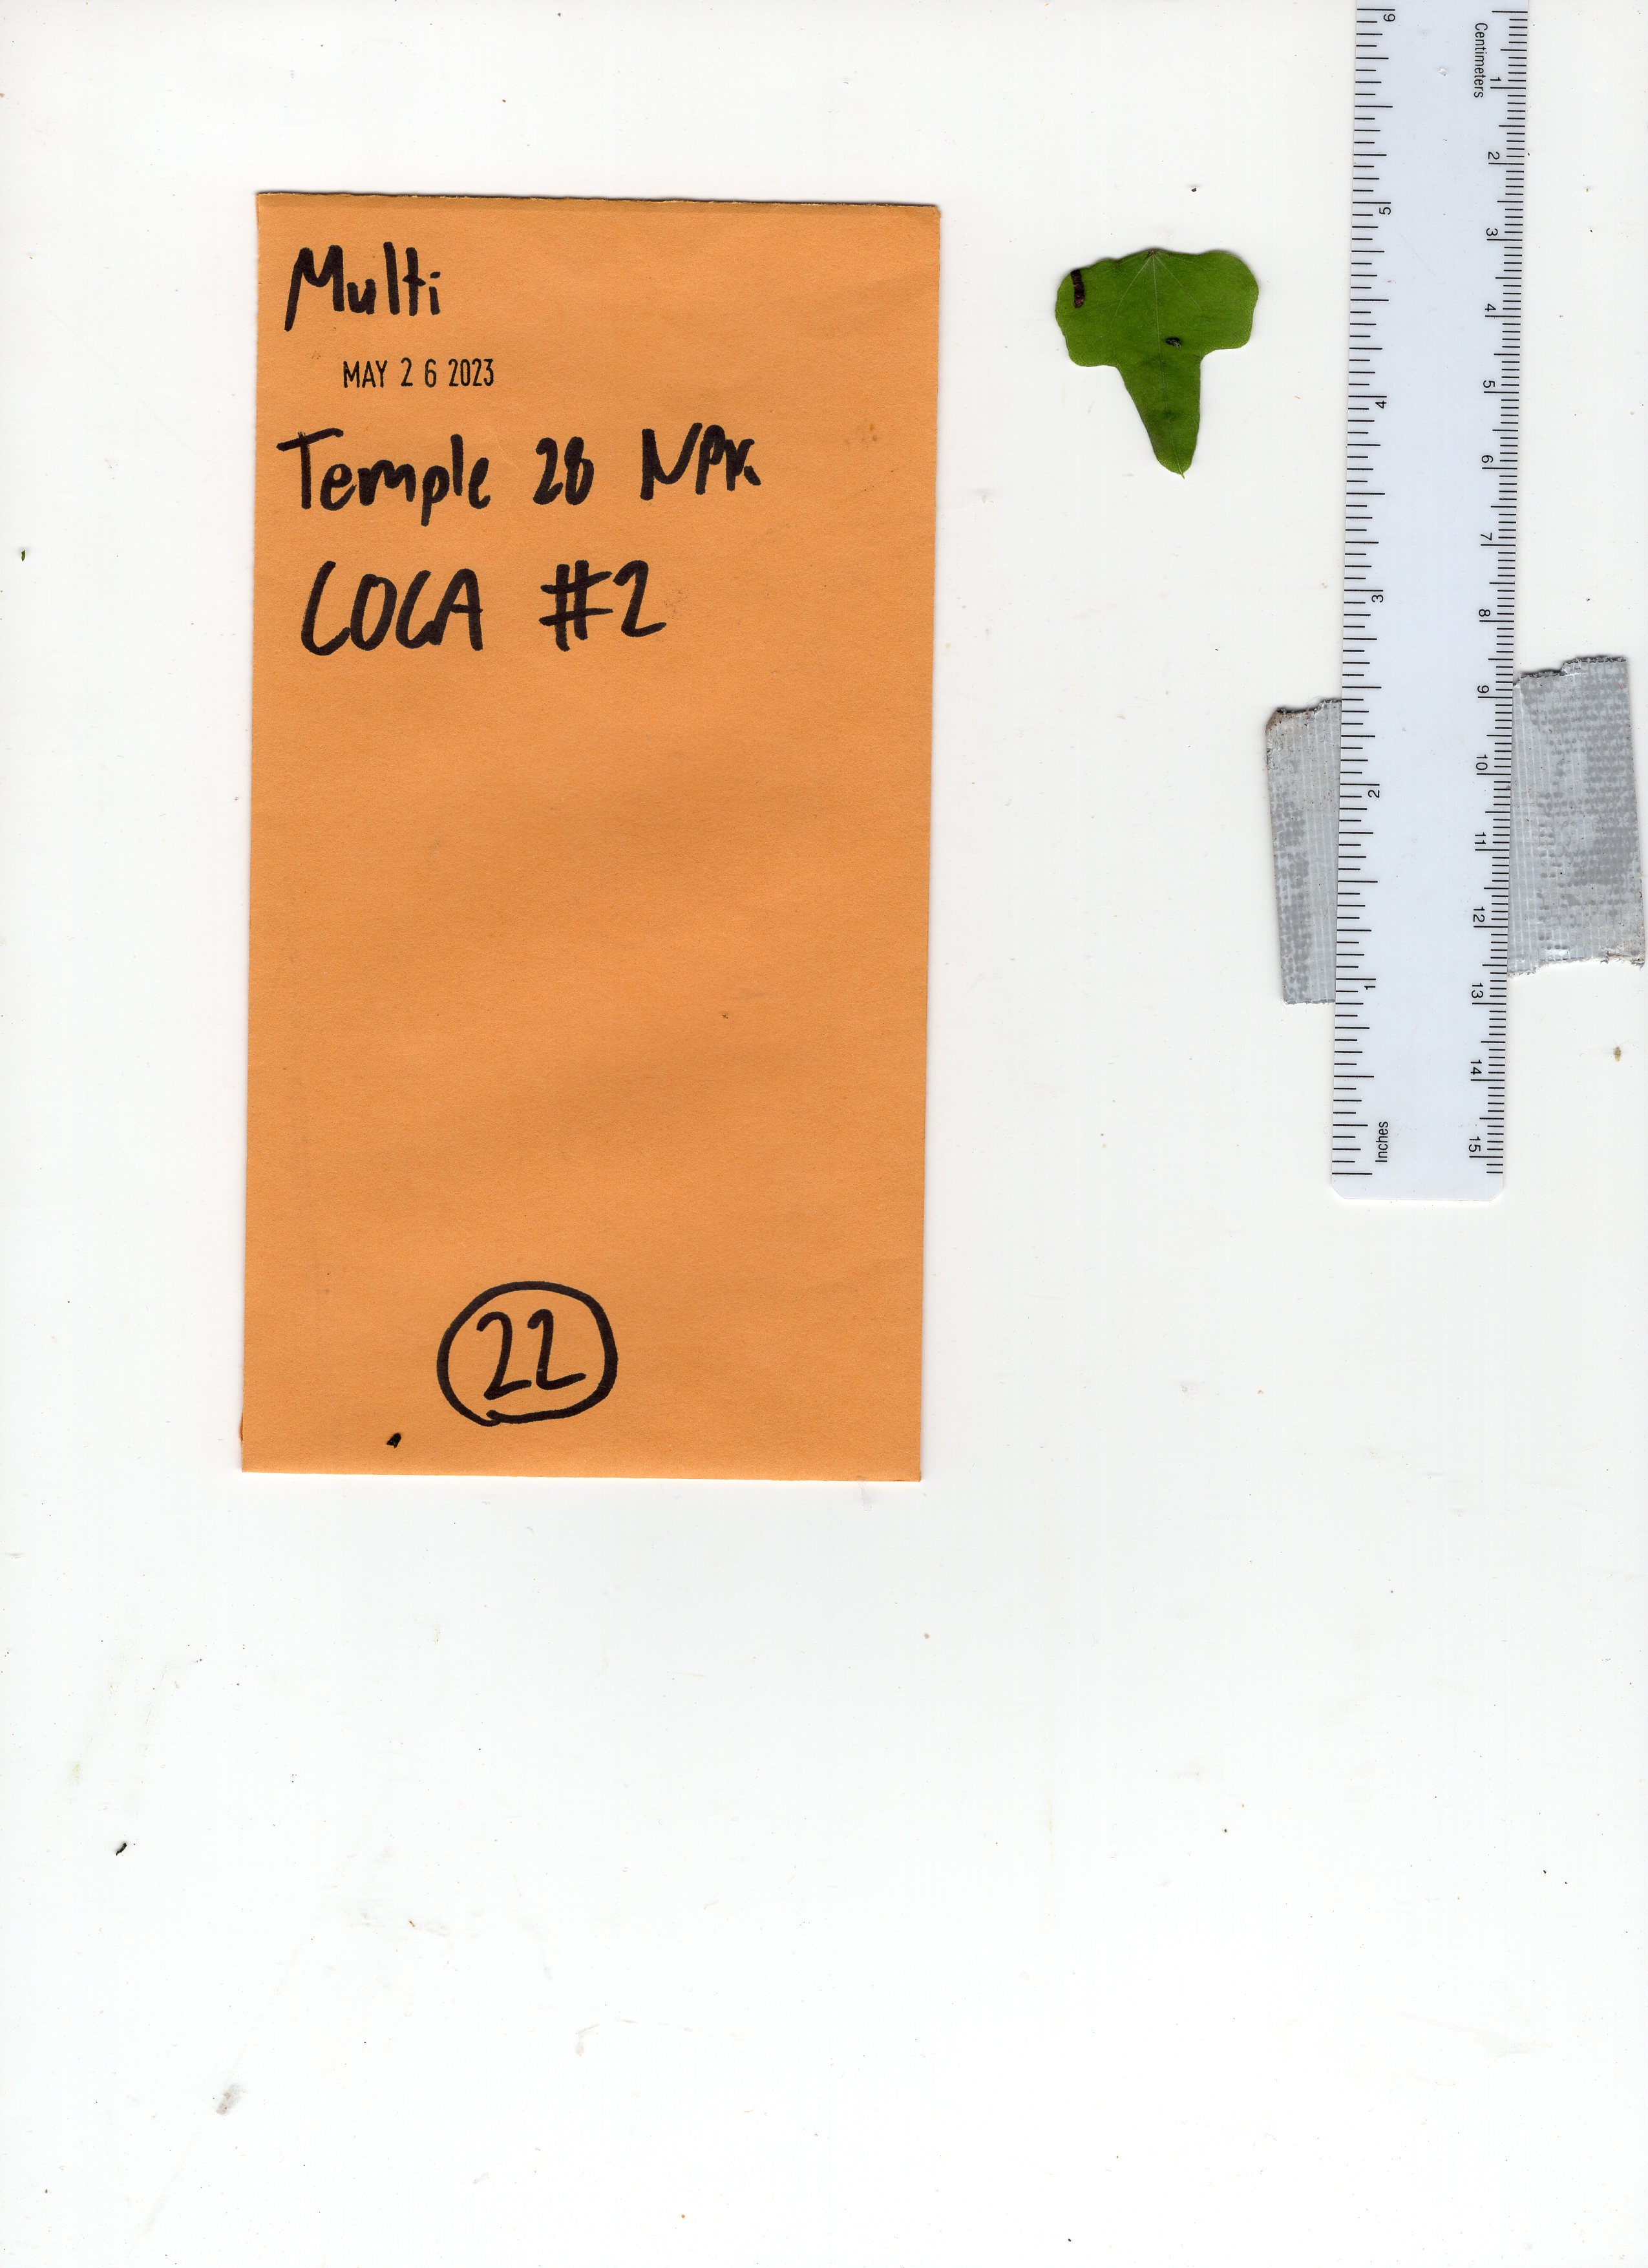 Multi
MAY 26 2023
Temple 28
COCA #2
22
Centimeters
1
2
3
4
5
6
7
8
9
10
11
12
13
14
15
6
5
4
3
2
1
Inches